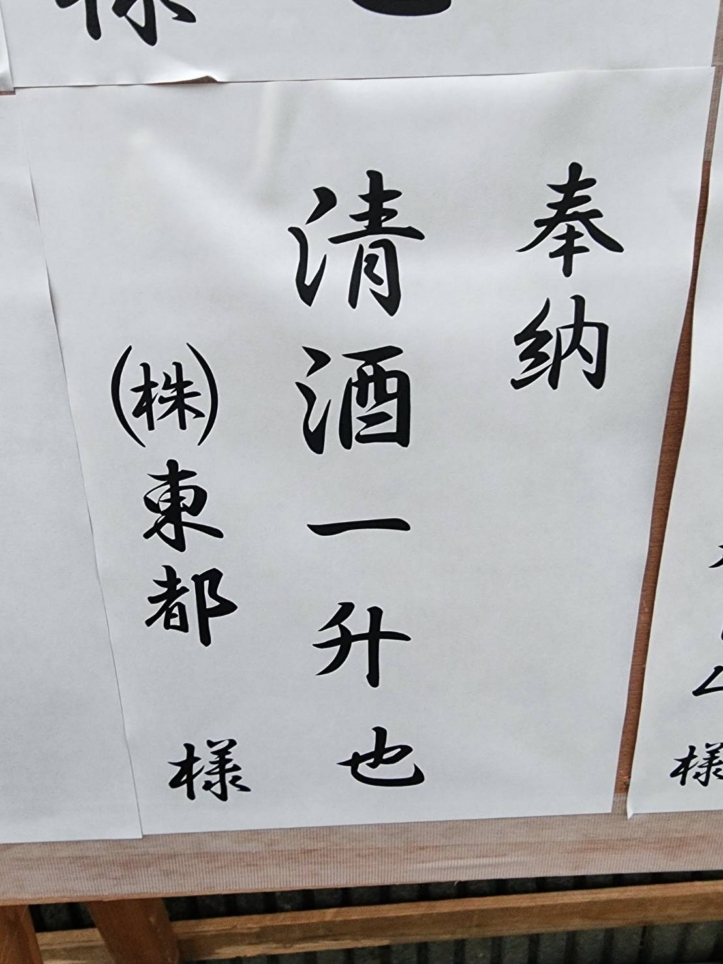 奉納
清酒一升也
㈱東都 様
様
也
様